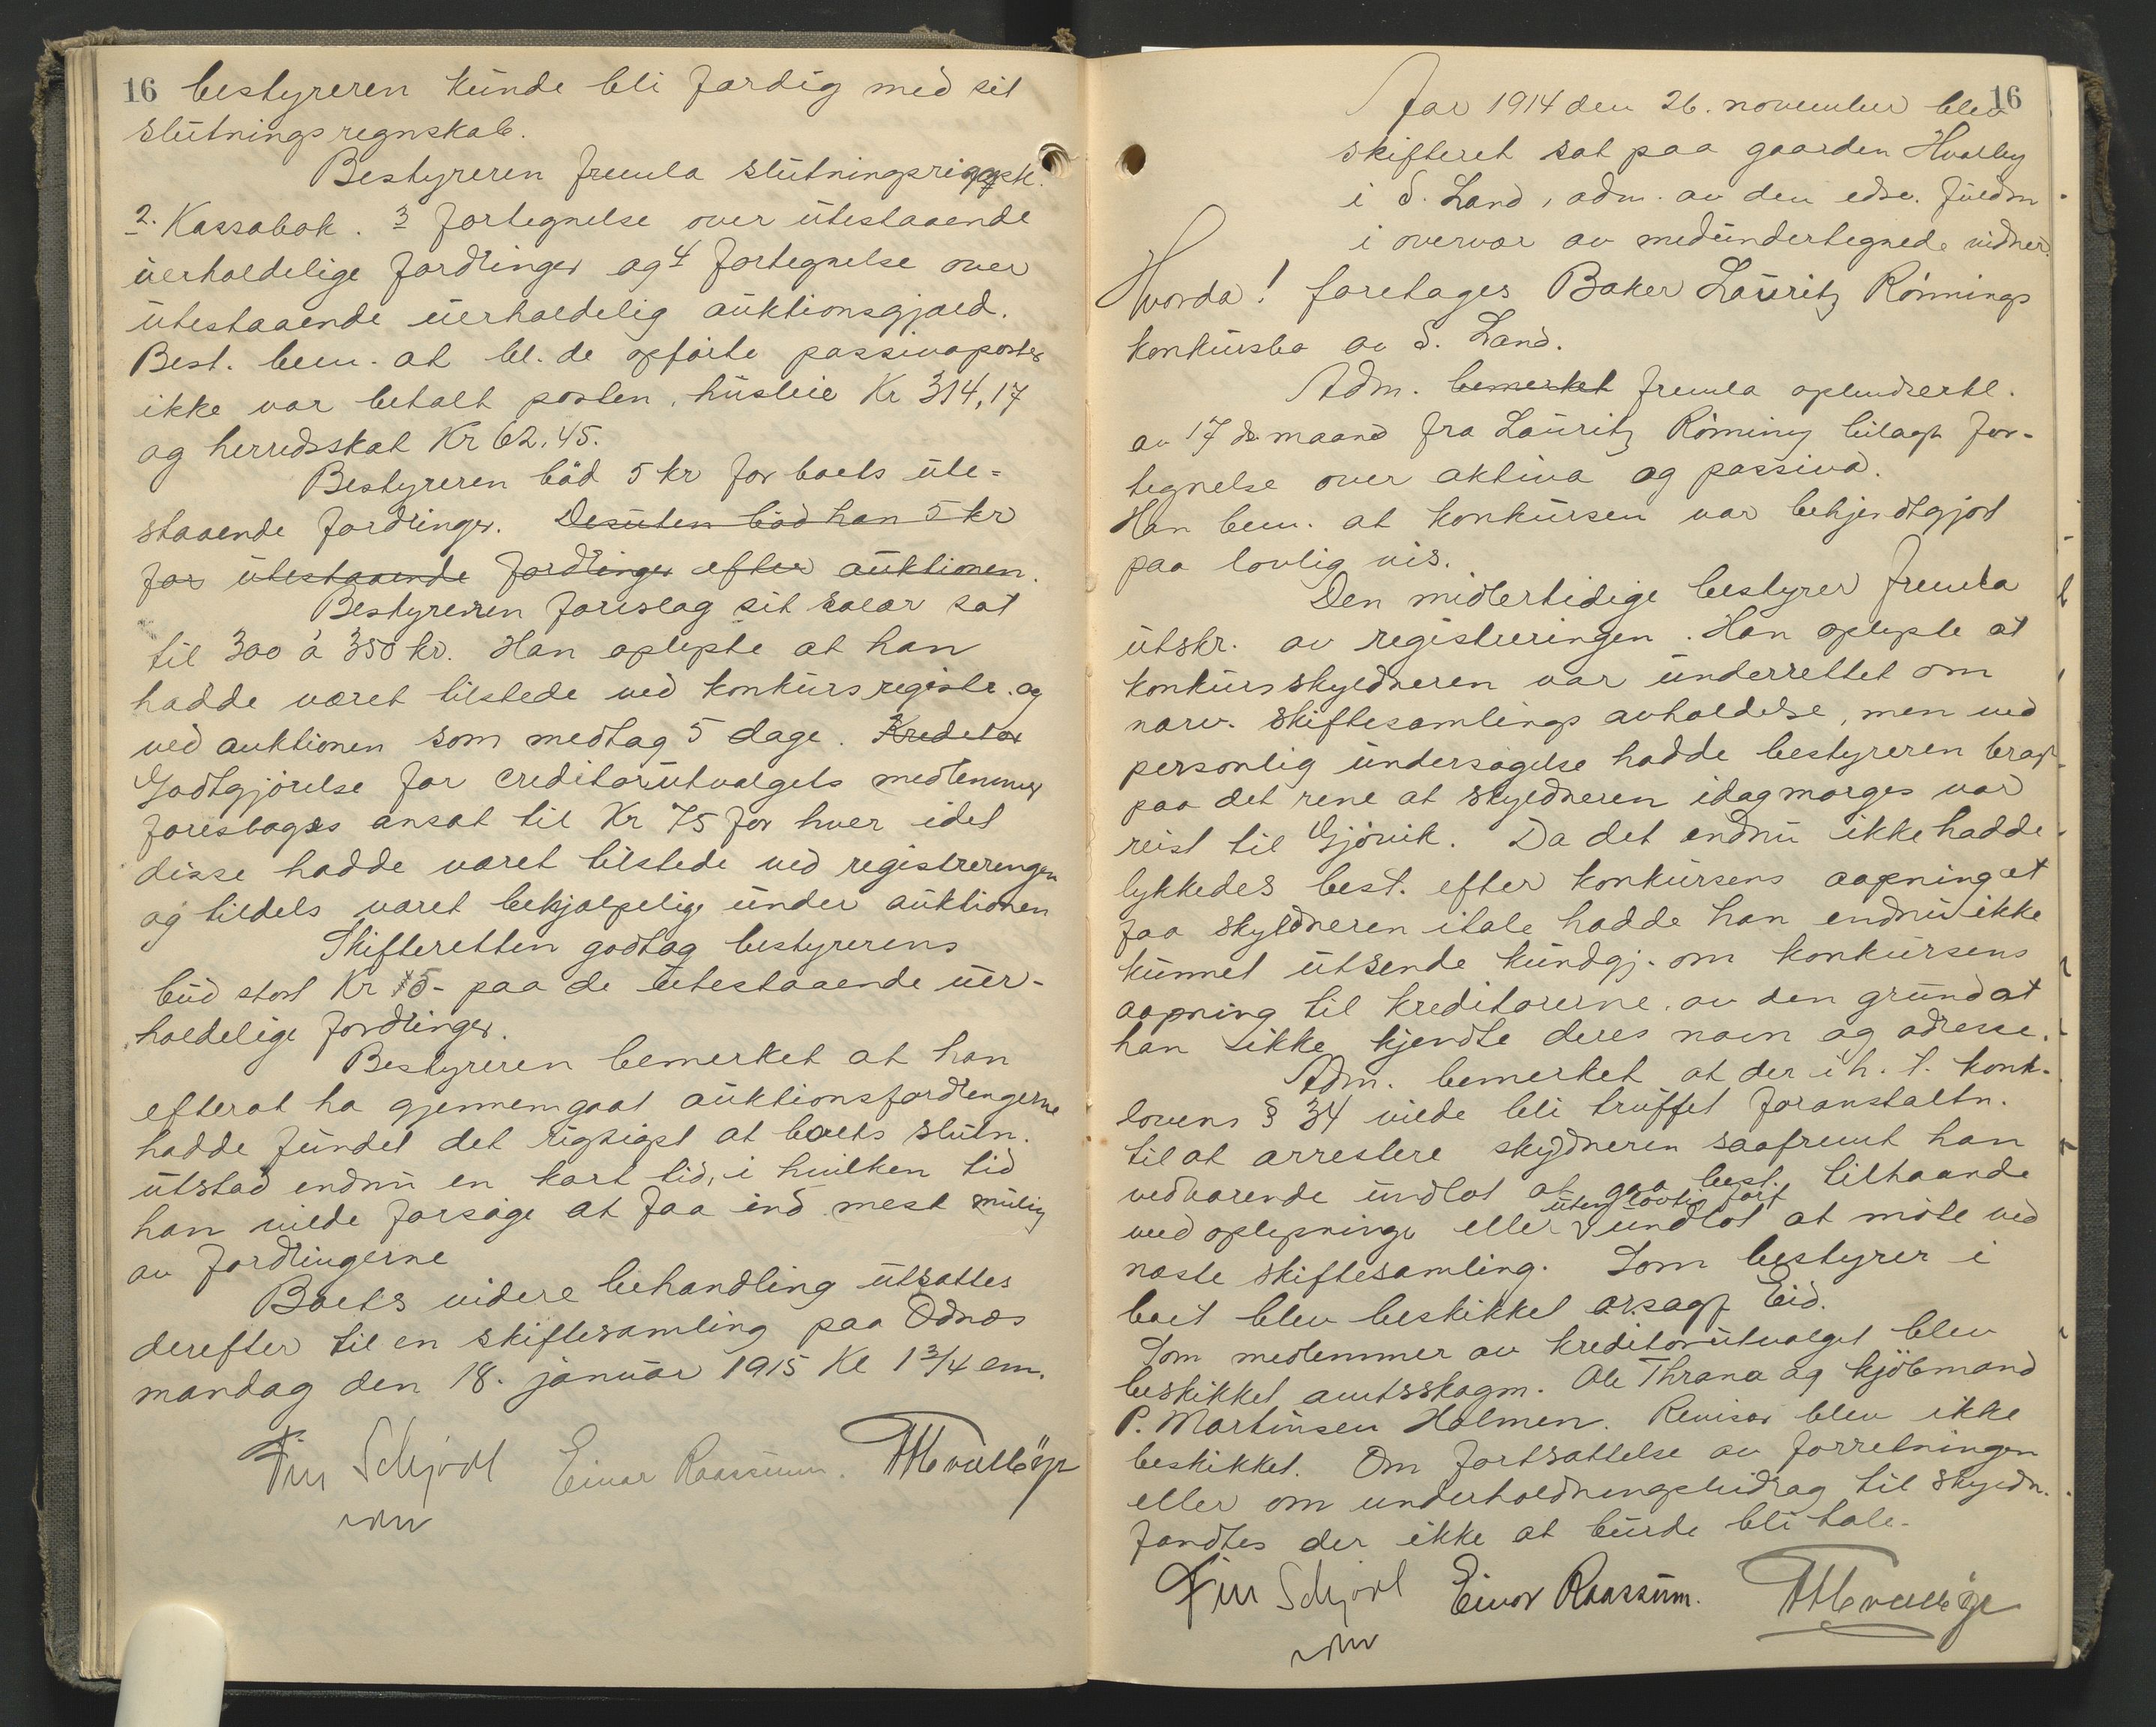 16 bestyreren kunde bli færdig med sit
slutningsregnskab.
Bestyreren fremla slutningsregnsk.
2. Kassabok. 3 fortegnelse over utestaaende
uerholdelige fordringer og 4 fortegnelse over
utestaaende uerholdelig auktionsgjæld.
Best. bem. at bl. de opførte passivaposter
ikke var betalt posten, husleie Kr 314,17
og herredsskat Kr 62.45.
Bestyreren bød 5 kr for boets ute-
staaende fordringer. Desuten bød han 5 kr
for utestaaende fordringer efter auktionen.
Bestyreren foreslog sit salær sat
til 300 à 350 kr. Han oplyste at han
hadde været tilstede ved konkursregistr. og
ved auktionen som medtog 5 dage. Kreditor
Godtgjørelse for creditorutvalgets medlemmer
foreslages ansat til Kr 75 for hver idet
disse hadde været tilstede ved registreringen
og tildels været behjælpelige under auktionen
Skifteretten godtog bestyrerens
bud stort Kr 5- paa de utestaaende uer-
holdelige fordringer.
Bestyreren bemerket at han
efterat ha gjennemgaat auktionsfordringerne
hadde fundet det rigtigst at boets slutn.
utstod endnu en kort tid, i hvilken tid
han vilde forsøge at faa ind mest mulig
av fordringerne
Boets videre behandling utsattes
derefter til en skiftesamling paa Odnæs
mandag den 18. januar 1915 Kl 1 3/4 em.
Finn Schjødt Einar Raassum.
16
Aar 1914 den 26. november blev
skifteret sat paa gaarden Hvalby
i S. Land, adm. av den edsv. fuldm
i overvær av medundertegnede vidner.
Hvorda! foretages Baker Lauritz Rønnings
konkursbo av S. Land.
Adm. bemerket fremla opbudserkl.
av 17 ds. maaned fra Lauritz Rønning bilagt for-
tegnelse over aktiva og passiva.
Han bem. at konkursen var bekjendtgjort
paa lovlig vis.
Den midlertidige bestyrer fremla
utskr. av registreringen. Han oplyste at
konkursskyldneren var underrettet om
nærv. skiftesamlings avholdelse, men ved
personlig undersøgelse hadde bestyreren bragt
paa det rene at skyldneren idag morges var
reist til Gjøvik. Da det endnu ikke hadde
lykkedes best. efter konkursens aapning at
faa skyldneren itale hadde han endnu ikke
kunnet utsende kundgj. om konkursens
aapning til kreditorerne, av den grund at
han ikke kjendte deres navn og adresse.
Adm. bemerket at der i h. t. konk-
lovens § 34 vilde bli truffet foranstaltn.
til at arrestere skyldneren saafremt han
vedvarende undlot at gaa best. tilhaande
uten lovlig forf
med oplysninger eller undlot at møte ved
næste skiftesamling. Som bestyrer i
boet blev beskikket o.r.sagf. Eid.
Som medlemmer av kreditorutvalget blev
beskikket amtsskogm. Ole Thrana og kjøbmand
P. Martinsen Holmen. Revisor blev ikke
beskikket. Om fortsættelse av forretningen
eller om underholdningsbidrag til skyldn.
fandtes der ikke at burde bli tale.
Finn Schjødt Einar Raassum.